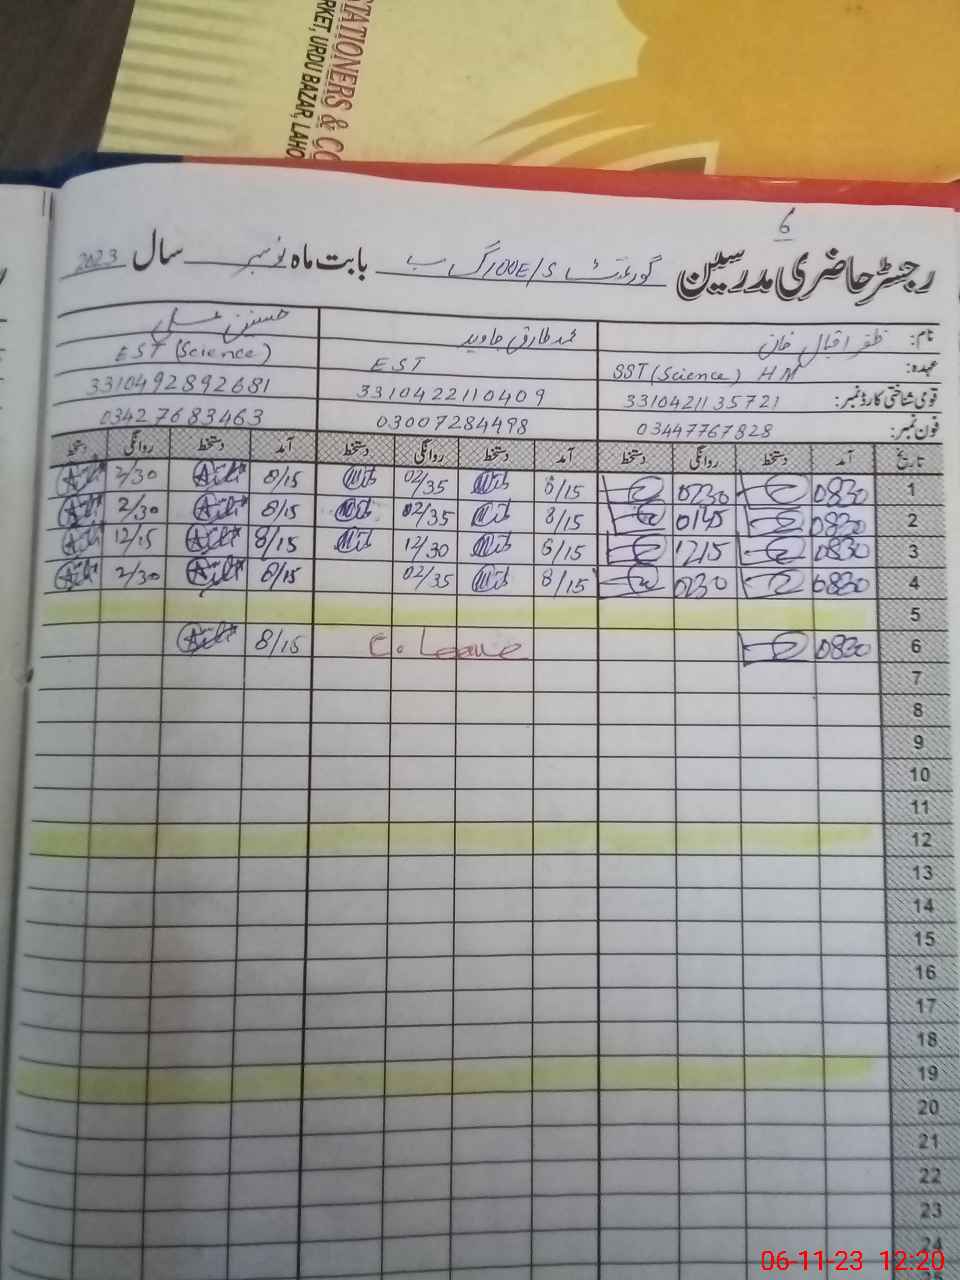 STATIONERS & CO
RKET, URDU BAZAR, LAHO
6
رجسٹر حاضری مدرسین گورنمنٹ 100E/S گ ب بابت ماہ نومبر سال 2023
نام: ظفر اقبال خان محمد طارق جاوید حسنین علی
عہدہ: SST (Science) HM EST EST (Science)
قومی شناختی کارڈ نمبر: 3310421135721 3310422110409 3310492892681
فون نمبر: 03447767828 03007284498 03427683463
تاریخ آمد دستخط روانگی دستخط آمد دستخط روانگی دستخط آمد دستخط روانگی دستخط
1 0830 0230 8/15 02/35 8/15 2/30
2 0830 0145 8/15 02/35 8/15 2/30
3 0830 1215 8/15 12/30 8/15 12/15
4 0830 0230 8/15 02/35 8/15 2/30
5
6 0830 C. Leave 8/15
7
8
9
10
11
12
13
14
15
16
17
18
19
20
21
22
23
24
06-11-23 12:20